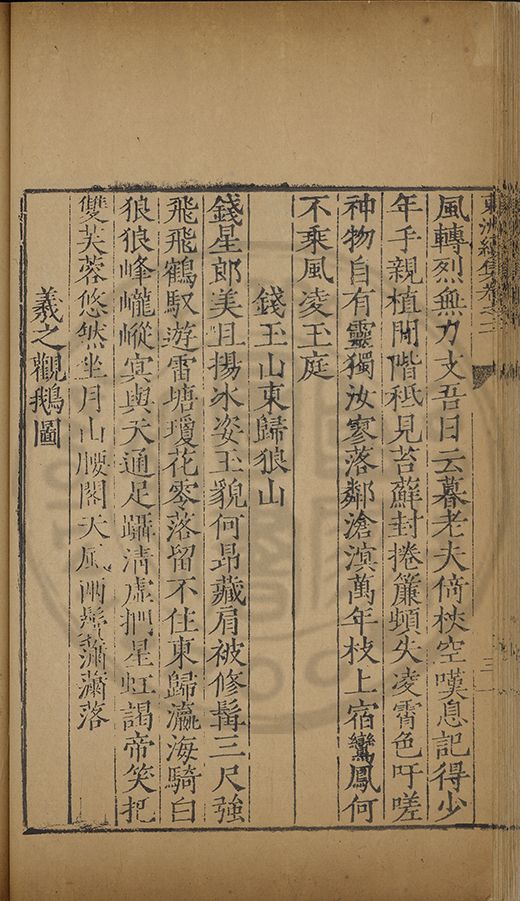 東洲續集卷之二
風轉烈無力支吾日云暮老夫倚杖空嘆息記得少
年手親植閒階秪見苔蘚封捲簾頓失凌霄色吁嗟
神物自有靈獨汝寥落鄰滄溟萬年枝上宿鸞鳳何
不乘風凌玉庭
錢玉山東歸狼山
錢星郎美且揚冰姿玉貌何昂藏肩被修髯三尺強
飛飛鶴馭遊雷塘瓊花零落留不住東歸瀛海騎白
狼狼峰巃嵸寔與天通足躡清虛捫星虹謁帝笑把
雙芙蓉悠然坐月山腰閣天風兩鬢瀟瀟落
羲之觀鵝圖